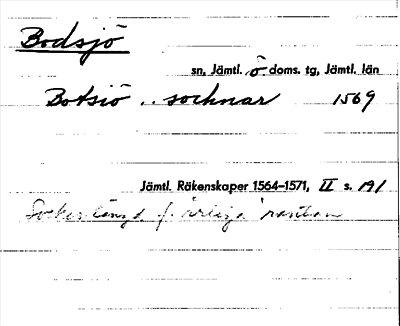 Bodsjö
sn, Jämtl. ö doms. tg, Jämtl. län
Botsiö .. socknar 1569
Jämtl. Räkenskaper 1564–1571, II s. 191
Sockenlängd f. årliga räntan